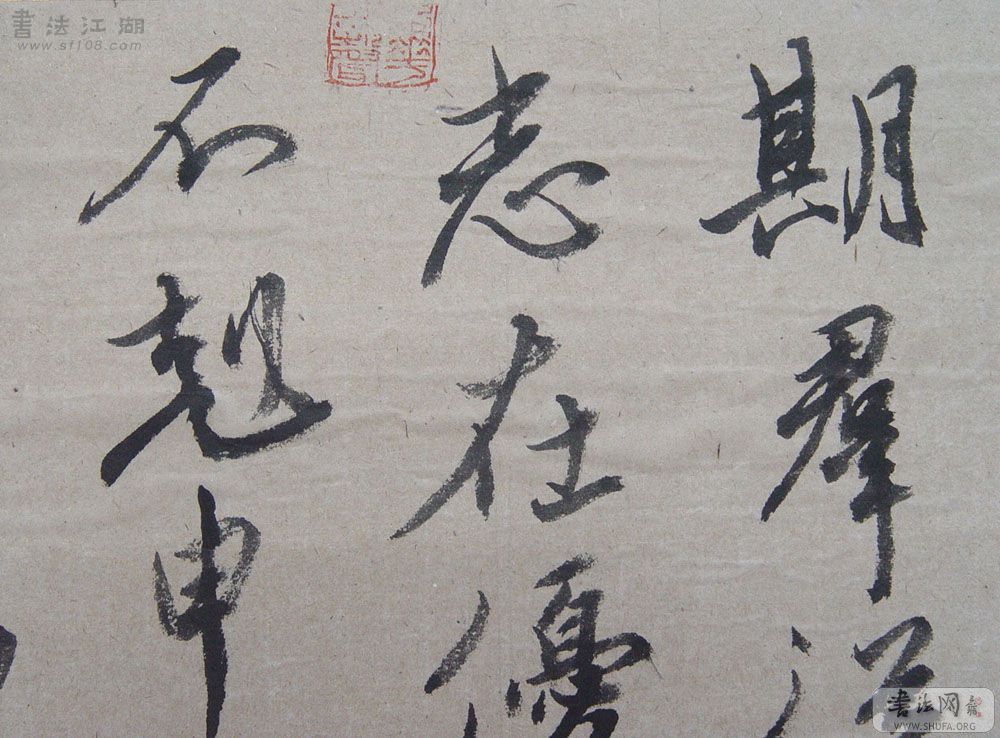 期羣
志在優
不申
書法江湖
www.sf108.com
书法网
WWW.SHUFA.ORG